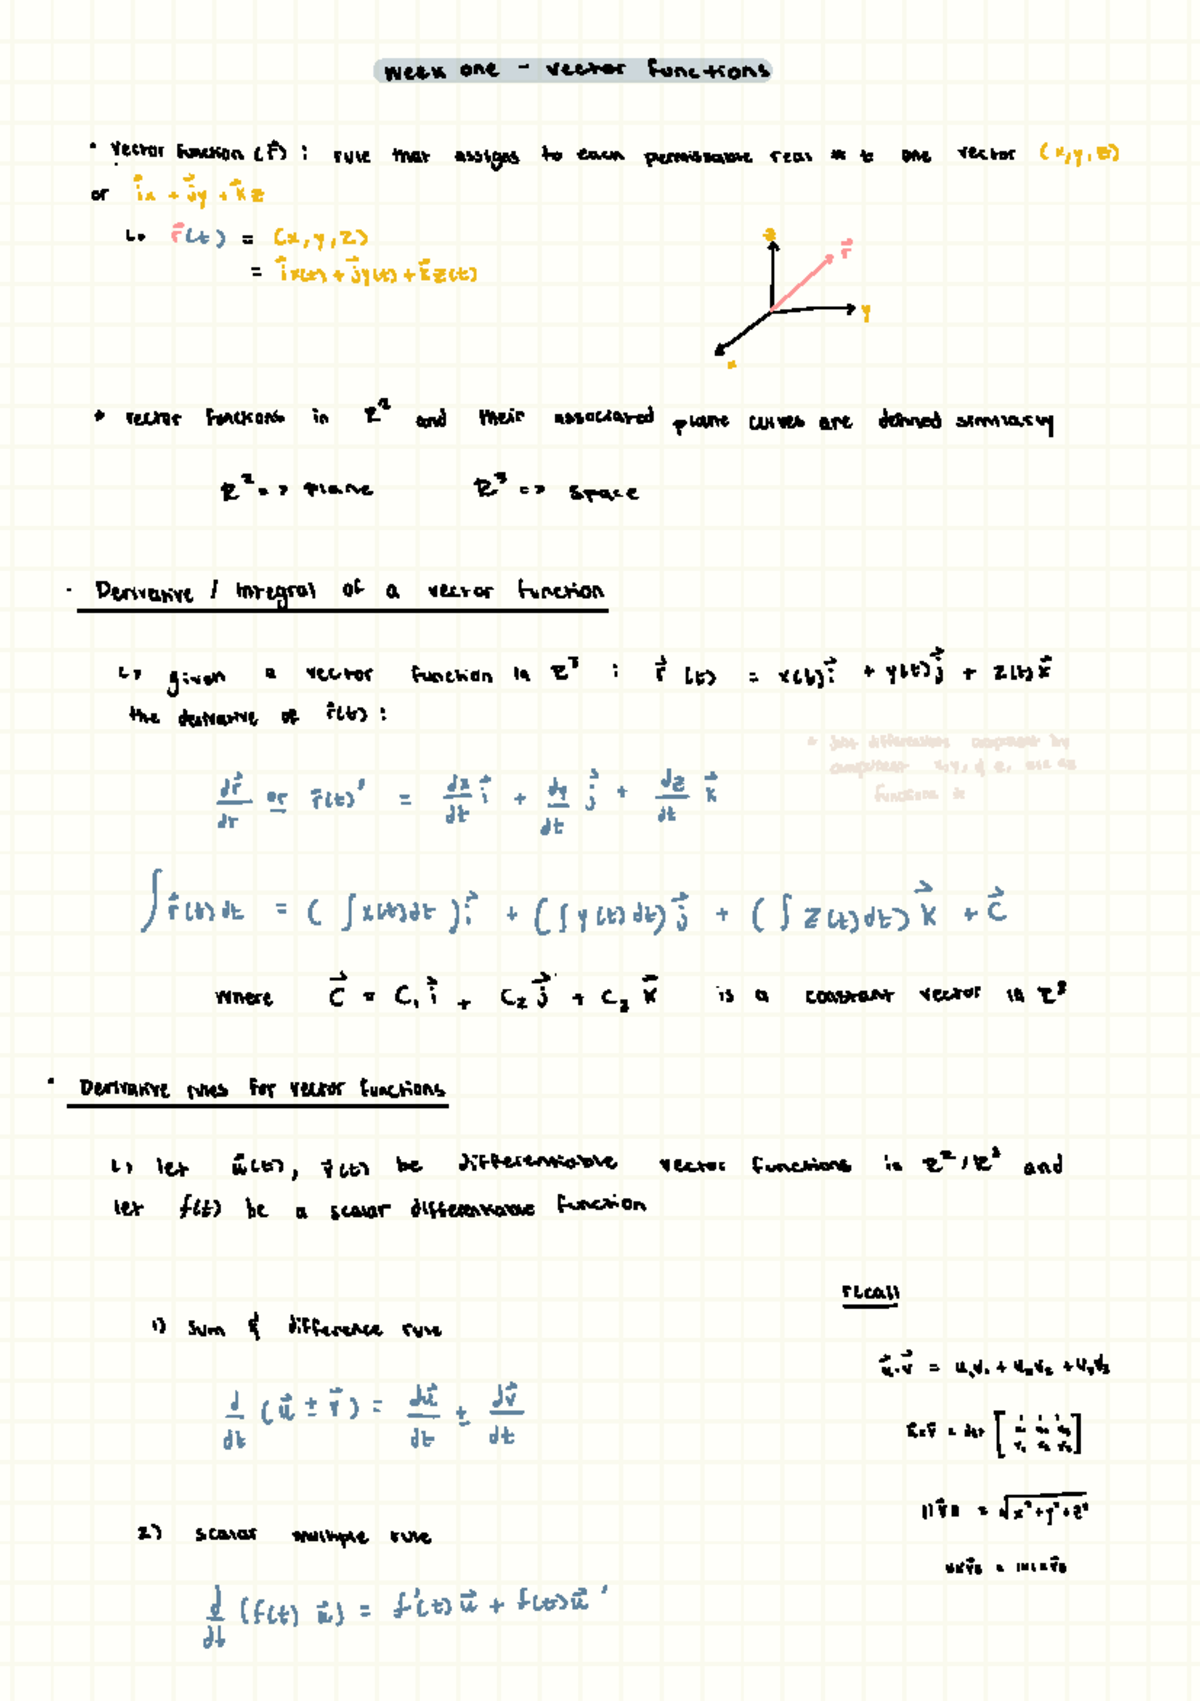 week one - vector functions
• Vector function (r⃗) : rule that assigns to each permissable real # t one vector (x,y,z)
or i⃗x + j⃗y + k⃗z
↳ r⃗(t) = (x,y,z)
= i⃗x(t) + j⃗y(t) + k⃗z(t)
z
r⃗
y
x
* vector functions in R² and their associated plane curves are defined similarly
R² => plane R³ => space
· Derivative / Integral of a vector function
↳ given a vector function in R³ : r⃗(t) = x(t)i⃗ + y(t)j⃗ + z(t)k⃗
the derivative of r⃗(t) :
* just differentiate component by
component x, y, & z, are as
functions *
dr⃗/dr or r⃗(t)' = dx/dt i⃗ + dy/dt j⃗ + dz/dt k⃗
∫r⃗(t)dt = (∫x(t)dt)i⃗ + (∫y(t)dt)j⃗ + (∫z(t)dt)k⃗ + C⃗
where C⃗ = C₁i⃗ + C₂j⃗ + C₃k⃗ is a constant vector in R³
• Derivative rules for vector functions
↳ let u⃗(t), v⃗(t) be differentiable vector functions in R²/R³ and
let f(t) be a scalar differentiable function
recall
1) sum & difference rule
u⃗·v⃗ = u₁v₁ + u₂v₂ + u₃v₃
d/dt (u⃗ ± v⃗) = du⃗/dt ± dv⃗/dt
u⃗×v⃗ = det [i j k
u₁ u₂ u₃
v₁ v₂ v₃]
||v⃗|| = √x²+y²+z²
2) scalar multiple rule
||kv⃗|| = |k| ||v⃗||
d/dt (f(t) u⃗) = f'(t)u⃗ + f(t)u⃗'